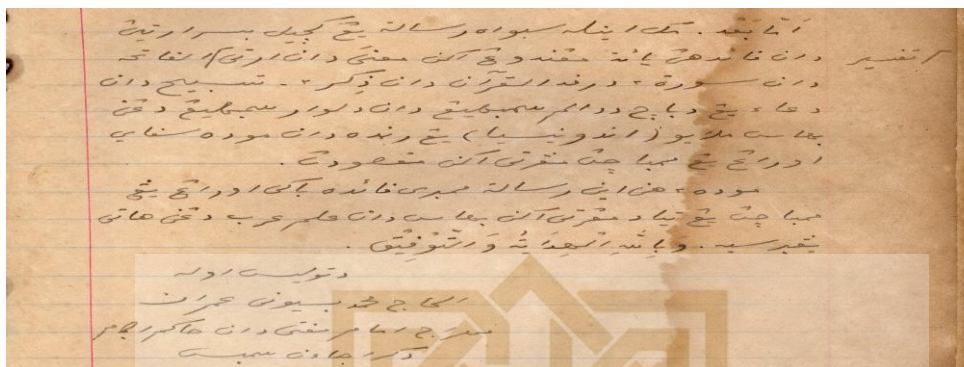 اما بعد. مک اينله سبواه رسالة يڠ کچيل بسر ارتيڽ
دان فائدهڽ يائت مڠندوڠ اکن معنى دان ارتي٢ الفاتحه / تفسير
دان سورة٢ درفد القرآن دان ذکر٢. تسبيح دان
دعاء يڠ دباچ ددالم سمبهيڠ دان دلوار سمبهيڠ دڠن
بهاس ملايو (اندونيسيا) يڠ رنده دان موده سفاي
اورڠ يڠ ممباچڽ مڠرتي اکن مقصودڽ.
موده٢هن اين رسالة ممبري فائده باکي اورڠ يڠ
ممباچڽ يڠ تياد مڠرتي اکن بهاس دان علم عرب دڠن هاتي
يڠبرسيه. وَبِاللهِ الْهِدَايَةُ وَالتَّوْفِيْقُ.
دتوليس اوله
الحاج محمد بسيوني عمران
مهراج امام مفتي دان حاکم
دکراجاءن سمبس